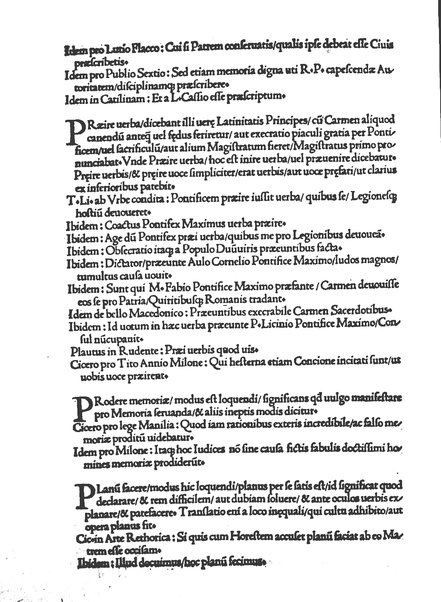 Idem pro Lutio Flacco: Cui si Patrem conseruatis/qualis ipse debeat esse Ciuis
præscribetis.
Idem pro Publio Sextio: Sed etiam memoria digna uti R.P. capescendæ Au-
toritatem/disciplinamq; præscribere.
Idem in Catilinam: Et a L.Cassio esse præscriptum.
PRæire uerba/dicebant illi uerę Latinitatis Principes/cū Carmen aliquod
canendū anteq̃ uel fędus feriretur/ aut execratio piaculi gratia per Ponti-
ficem/uel sacrificulū/aut alium Magistratum fieret/Magistratus primo pro-
nunciabat. Vnde Præire uerba/ hoc est inire uerba/uel præuenire dicebatur.
Pręire uerbis/& pręire uoce simpliciter/erat uerbis/aut uoce pręfari/ut clarius
ex inferioribus patebit.
T.Li. ab Vrbe condita: Pontificem præire iussit uerba/ quibus se/ Legionesq;
hostiū deuoueret.
Ibidem: Coactus Pontifex Maximus uerba præire.
Ibidem: Age dū Pontifex præi uerba/quibus me pro Legionibus deuoueā.
Ibidem: Obsecratio itaq; a Populo Duūuiris præeuntibus facta.
Ibidem: Dictator/præeunte Aulo Cornelio Pontifice Maximo/ludos magnos/
tumultus causa uouit.
Ibidem: Sunt qui M.Fabio Pontifice Maximo præfante / Carmen deuouisse
eos se pro Patria/Quiritibusq; Romanis tradant.
Idem de bello Macedonico: Præeuntibus execrabile Carmen Sacerdotibus.
Ibidem: Id uotum in hæc uerba præeunte P.Licinio Pontifice Maximo/Con-
sul nūcupanit.
Plautus in Rudente: Præi uerbis quod uis.
Cicero pro Tito Annio Milone: Qui hesterna etiam Concione incitati sunt/ut
uobis uoce præirent.
PRodere memoriæ/ modus est loquendi/ significans qd uulgo manifestare
pro Memoria seruanda/& aliis ineptis modis dicitur.
Cicero pro lege Manilia: Quod iam rationibus exteris incredibile/ac falso me-
moriæ proditū uidebatur.
Idem pro Milone: Itaq; hoc Iudices nō sine causa fictis fabulis doctissimi ho-
mines memoriæ prodiderūt.
PLanū facere/modus hic loquendi/planus per se satis est/id significat quod
declarare/& rem difficilem/ aut dubiam soluere/ & ante oculos uerbis ex-
planare/& patefacere. Translatio ensi a loco inęquali/qui cultu adhibito/aut
opera planus fit.
Cic.in Arte Rethorica: Si quis cum Horestem accuset planū faciat ab eo Ma-
trem esse occisam.
Ibidem: Illud docuimus/hoc planū fecimus.